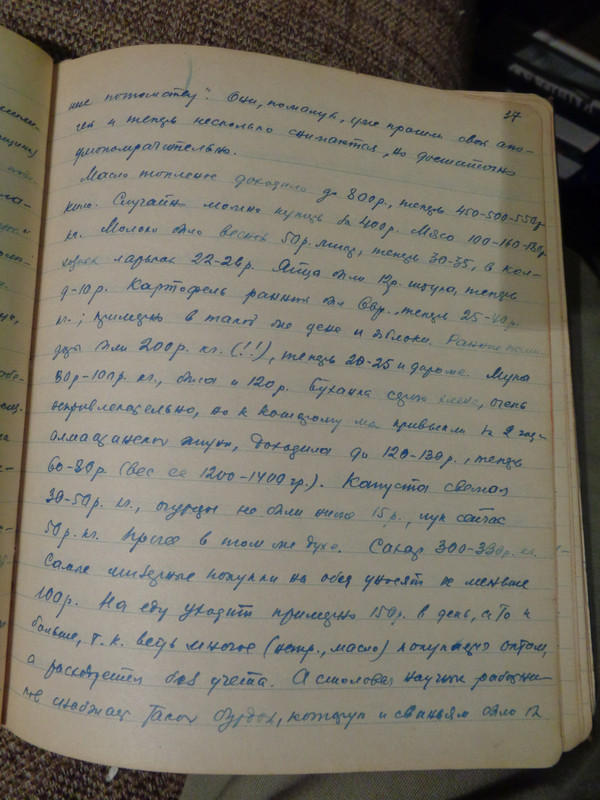 17
ние потомству". Они, пожалуй, уже прошли свой апо-
гей и теперь несколько снижаются, но достаточно
умопомрачительно.
Масло топленое доходило до 800р., теперь 450-500-550р
кило. Случайно можно купить за 400р. Мясо 100-140-180р
кг. Молоко было весной 50р. литр, теперь 30-35, в кол-
хозных ларьках 22-26р. Яйца были 12р. штука, теперь
9-10р. Картофель ранний был 60р., теперь 25-40р.
кг.; примерно в такой же цене и яблоки. Ранние поми-
доры были 200р. кг. (!!), теперь 20-25 и дороже. Мука
80р-100р. кг., была и 120р. Буханка хлеба, очень
непривлекательно, но к которому мы привыкли за 2 года
алмаатинской жизни, доходила до 120-130р., теперь
60-80р (вес ее 1200-1400гр.). Капуста свежая
30-50р. кг., огурцы не были ниже 15р., лук сейчас
50р. кг. Прочее в том же духе. Сахар 300-330р. кг.
Самые мизерные покупки на обед уносят не меньше
100р. На еду уходит примерно 150р. в день, а то и
больше, т.к. ведь многое (напр., масло) покупаешь оптом,
а расходуется без учета. А столовая научных работни-
ков снабжает такой бурдой, которую и свиньям было